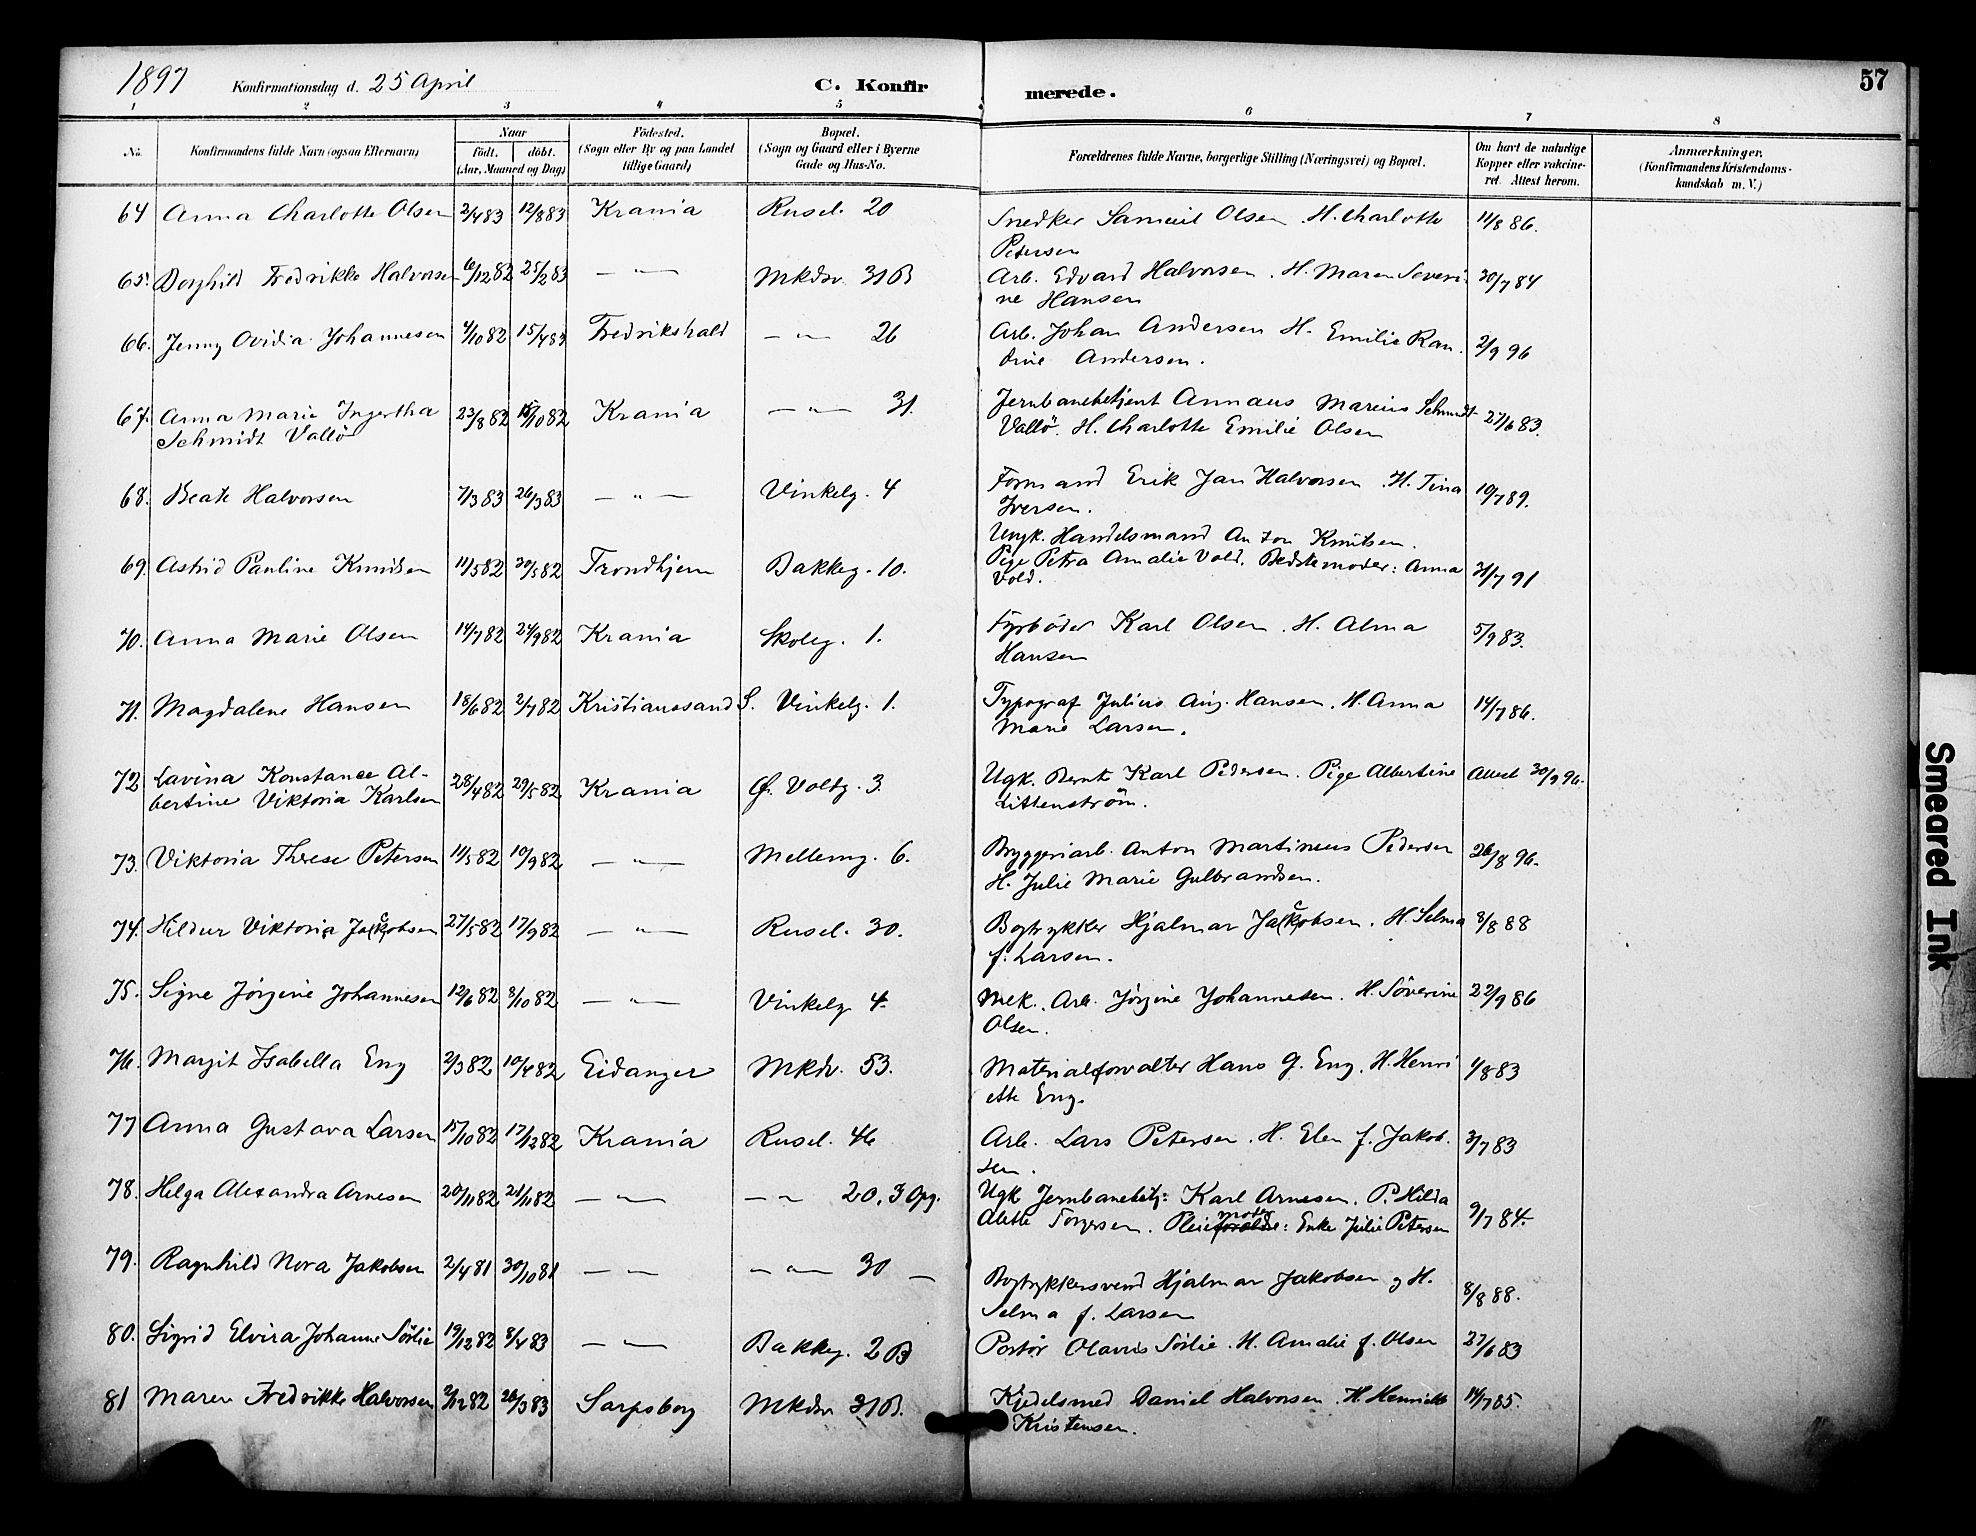 1897 Konfirmationsdag d. 25 April C. Konfirmerede. 57
1 2 3 4 5 6 7 8
No. Konfirmandens fulde Navn (ogsaa Efternavn) Naar födt. döbt. (Aar, Maaned og Dag) Födested. (Sogn eller By og paa Landet tillige Gaard) Bopæl. (Sogn og Gaard eller i Byerne Gade og Hus-No. Forældrenes fulde Navne, borgerlige Stilling (Næringsvei) og Bopæl. Om havt de naturlige Kopper eller vakcineret. Attest herom. Anmærkninger. (Konfirmandens Kristendomskundskab m. V.)
64 Anna Charlotte Olsen 2/4 83 12/8 83 Krania Rusel. 20 Snedker Samuel Olsen . H. Charlotte 11/8 86.
Petersen
65. Borghild Fredrikke Halvorsen 6/12 82 25/2 83 — " — Mkdsv. 31B Arb. Edvard Halvorsen . H. Maren Severi- 30/7 84
ne Hansen
66. Jenny Ovidia Johannesen 4/10 82 15/4 83 Fredrikshald — " — 26 Arb. Johan Andersen H. Emilie Ran- 2/9 96
dine Andersen.
67. Anna Marie Ingertha 23/8 82 15/10 82 Krania — " — 31. Jernbanebetjent Annæus Marius Schmidt 27/6 83.
Schmidt Vallö Vallö. H. Charlotte Emilie Olsen
68. Beate Halvorsen 7/3 83 26/3 83 — " — Vinkelg. 4 Formand Erik Jan Halvorsen . H. Tina 10/7 89.
Iversen.
69. Astrid Pauline Knudsen 11/5 82 30/5 82 Trondhjem Bakkeg. 10. Ungk. Handelsmand Anton Knutsen.
Pige Petra Amalie Vold. Bedstemoder: Anna 31/7 91
Vold.
70. Anna Marie Olsen 14/7 82 24/9 82 Krania Skoleg. 1. Fyrböder Karl Olsen . H. Alma 5/9 83.
Hansen
71. Magdalene Hansen 18/6 82 2/7 82 Kristianssand S. Vinkelg. 1. Typograf Julius Aug. Hansen. H. Anna 14/7 86.
Marie Larsen.
72 Lavina Konstance Al- 28/4 82 29/5 82 Krania Ø. Voltg. 3. Ugk. Bernt Karl Pedersen. Pige Albertine Attest 30/9 96.
bertine Viktoria Karlsen Littenström.
73. Viktoria Therese Petersen 11/5 82 10/9 82 — " — Mellemg. 6. Bryggeriarb. Anton Martinius Pedersen 26/8 96.
H. Julie Marie Gulbrandsen.
74. Hildur Viktoria Jakobsen 27/5 82 17/9 82 — " — Rusel. 30. Bogtrykker Hjalmar Jakobsen . H. Selma 8/8 88
f. Larsen.
75. Signe Jörgine Johannesen 12/6 82 8/10 82 — " — Vinkelg 4. Mek. Arb. Jörgine Johannesen. H. Söverine 22/9 86
Olsen.
76. Margit Isabella Eng 2/3 82 10/4 82 Eidanger Mkdv. 53. Materialforvalter Hans G. Eng. H. Henri 1/8 83
ette Eng.
77 Anna Gustava Larsen 15/10 82 17/12 82 Krania Rusel. 46 Arb. Lars Petersen . H. Elen f. Jakob- 3/7 83
sen.
78. Helga Alexandra Arnesen 20/11 82 21/11 82 — " — — " 20, 3 Opg. Ugk Jernbanebetj: Karl Arnesen. P. Hilda 9/7 84.
Alette Torgersen . Pleiemoder: Enke Julie Petersen
79. Ragnhild Nora Jakobsen 2/4 81 30/10 81 — " — — " — 30 — Bogtrykkersvend Hjalmar Jakobsen og H. 8/8 88.
Selma f. Larsen
80. Sigrid Elvira Johanne Sörlie 19/12 82 8/4 83 — " — Bakkeg. 2B Portör Olaus Sörlie . H. Amalie f. Olsen 27/6 83
81 Maren Fredrikke Halvorsen 2/12 82 26/3 83 Sarpsborg Mkdsv 31B. Kjedelsmed Daniel Halvorsen . H. Henriette 14/7 85.
Kristensen.
Smeared Ink